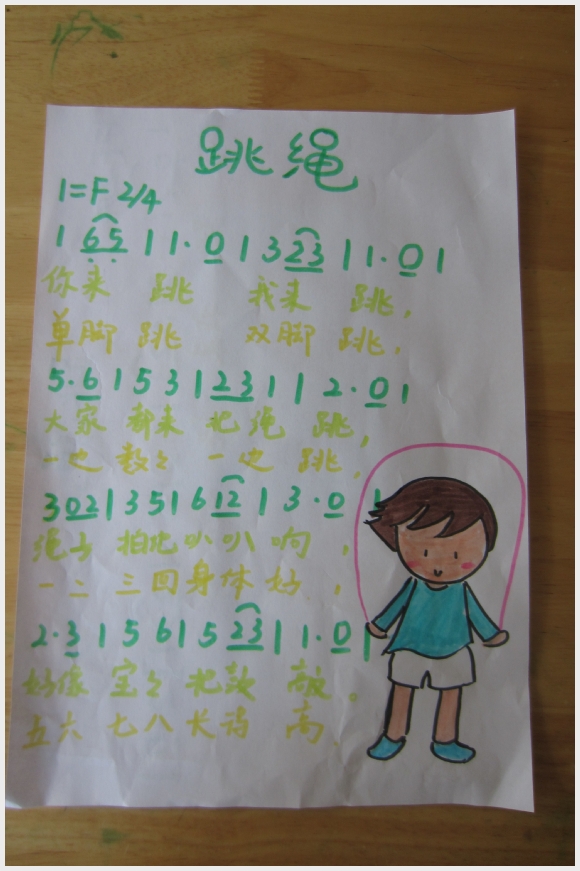 跳绳
1=F 2/4
1 65 | 1 1· 0 | 3 23 | 1 1· 0 |
你来 跳 我来 跳，
单脚 跳 双脚 跳，
5·6 | 5 3 | 23 1 | 2·0 |
大家 都来 把绳 跳，
一边 数数 一边 跳，
3 02 | 3 5 | 6 12 | 3·0 |
绳子 拍地 叭叭 响，
一二 三四 身体 好，
2·3 | 5 6 | 5 23 | 1·0 |
好像 宝宝 把鼓 敲。
五六 七八 长 高